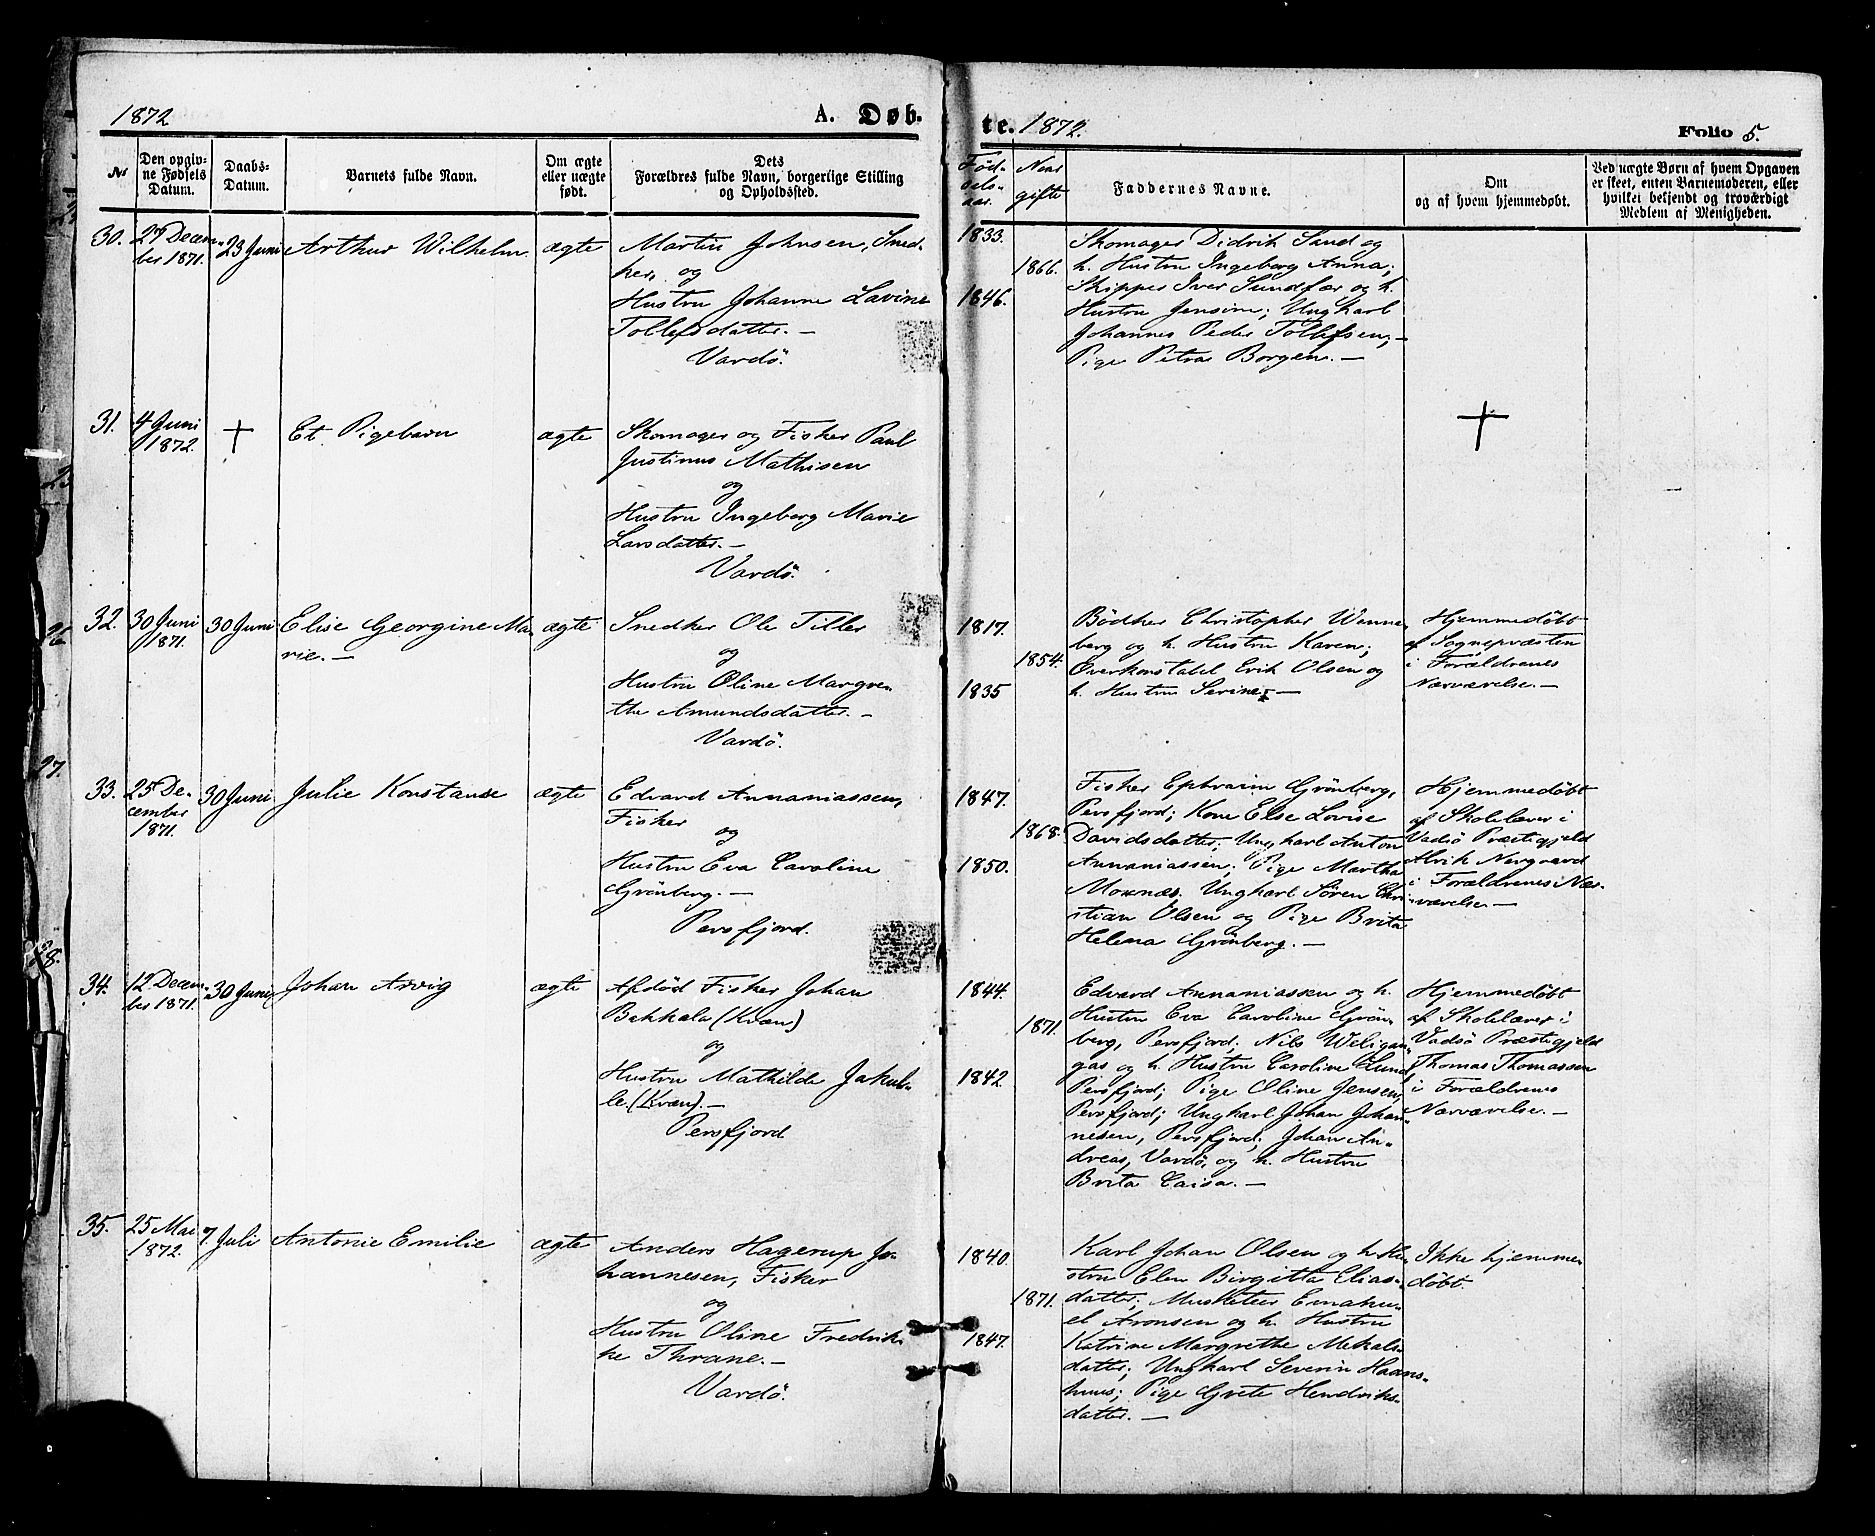 1872
A. Døb-
te. 1872.
Folio 5.
№
Den opgiv-
ne Fødsels
Datum.
Daabs-
Datum.
Barnets fulde Navn.
Om ægte
eller uægte
født.
Dets
Forældres fulde Navn, borgerlige Stilling
og Opholdssted.
Fød-
sels-
aar.
Naar
gifte
Faddernes Navne.
Om
og af hvem hjemmedøbt.
Ved uægte Børn af hvem Opgaven
er skeet, enten Barnemoderen, eller
hvilket bekjendt og troværdigt
Medlem af Menigheden.
30.
27 Decem-
ber 1871.
23 Juni
Arthur Wilhelm
ægte
Martin Johnsen, Sned-
ker, og
Hustru Johanne Lavine
Tollefsdatter. –
Vardö.
1833.
1866.
1846.
Skomager Didrik Sand og
h. Hustru Ingeborg Anna;
Skipper Iver Sundfær og h.
Hustru Jensine; Ungkarl
Johannes Peder Tollefsen; –
Pige Petra Borgen. –
31.
4 Juni
1872.
+
Et Pigebarn
ægte
Skomager og Fisker Paul
Justinus Mathisen
og
Hustru Ingeborg Marie
Larsdatter. –
Vardö.
+
32.
30 Juni
1871.
30 Juni
Elise Georgine Ma-
rie. –
ægte
Snedker Ole Tiller
og
Hustru Oline Margre-
the Amundsdatter. –
Vardö.
1817.
1854.
1835
Bødker Christopher Wenne-
berg og h. Hustru Karen;
Overkonstabel Erik Olsen og
h. Hustru Serine. –
Hjemmedöbt
af Sognepræsten
i Forældrenes
Nærværelse. –
33.
25 De-
cember
1871.
30 Juni
Julie Konstanse
ægte
Edvard Annaniassen,
Fisker
og
Hustru Eva Caroline
Grönberg. –
Persfjord.
1847.
1868.
1850.
Fisker Ephraim Grönberg,
Persfjord; Kone Else Lovise
Davidsdatter; Ungkarl Anton
Annaniassen; Pige Martha
Moxnæs. Ungkarl Sören Chri-
stian Olsen og Pige Brita
Helena Grönberg. –
Hjemmedöbt
af Skolelærer i
Vadsö Præstegjeld
Alrik Nergaard
i Forældrenes Nær-
værelse. –
34.
12 Decem-
ber 1871.
30 Juni
Johan Arvig
ægte
Afdöd Fisker Johan
Bakkala (Kvæn)
og
Hustru Mathilde Jakul-
le. (Kvæn). –
Persfjord
1844.
1871.
1842.
Edvard Annaniassen og h.
Hustru Eva Caroline Grön-
berg, Persfjord; Nils Weligan-
gas og h. Hustru Caroline Lund,
Persfjord; Pige Oline Jensen,
Persfjord; Ungkarl Johan Johan-
nesen, Persfjord; Johan An-
dreas, Vardö, og h. Hustru
Brita Caisa. –
Hjemmedöbt
af Skolelærer i
Vadsö Præstegjeld
Thomas Thomassen
i Forældrenes
Nærværelse. –
35.
25 Mai
1872.
7. Juli
Antonie Emilie
ægte
Anders Hagerup Jo-
hannesen, Fisker
og
Hustru Oline Fredrik-
ke Thrane. –
Vardö.
1840.
1871.
1847.
Karl Johan Olsen og h. Hu-
stru Elen Birgitta Elias-
datter; Musketeer Emanu-
el Aronsen og h. Hustru
Katrine Margrethe Mekals-
datter; Ungkarl Severin Haans-
huus; Pige Grete Hendriks-
datter. –
Ikke hjemme-
döbt.
25
26
27.
28.